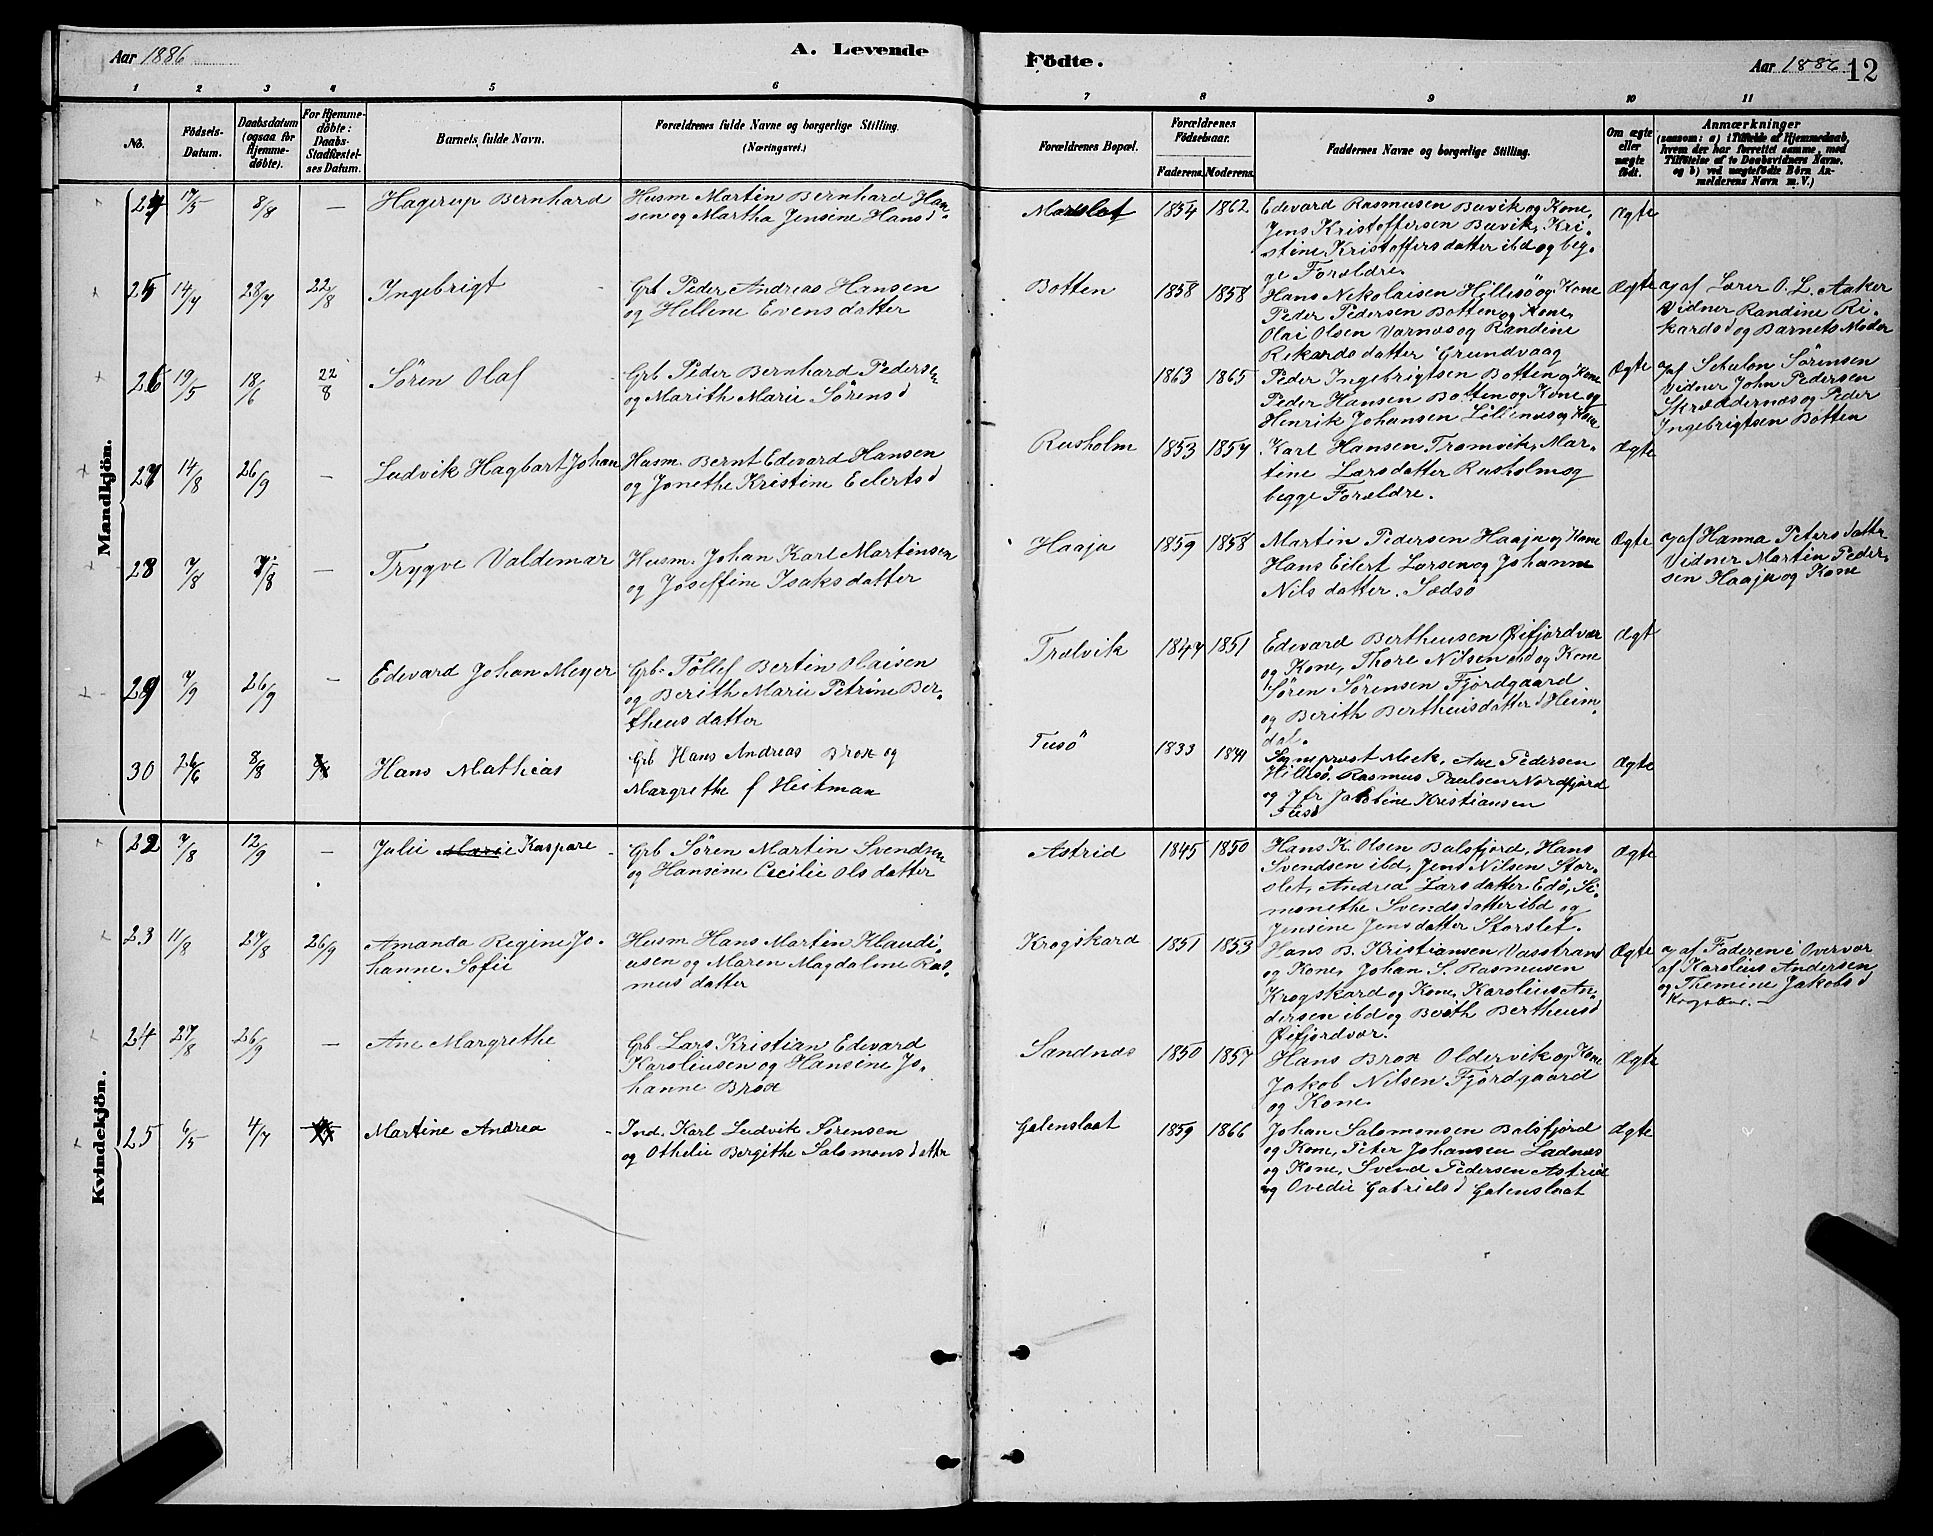 Aar 1886
A. Levende
Födte.
Aar 1886
12
1 2 3 4 5 6 7 8 9 10 11
No.
Födsels-Datum.
Daabsdatum (ogsaa for Hjemme-döbte).
For Hjemme-döbte: Daabs-Stadfæstel-ses Datum.
Barnets fulde Navn.
Forældrenes fulde Navne og borgerlige Stilling.
(Næringsvei.)
Forældrenes Bopæl.
Forældrenes Födselsaar.
Faderens. Moderens.
Faddernes Navne og borgerlige Stilling.
Om ægte eller uægte födt.
Anmærkninger
(saasom: a) i Tilfælde af Hjemmedaab,
hvem der har forrettet samme, med
Tilföielse af to Daabsvidners Navne,
og b) ved uægtefödte Börn An-
melderens Navn m. V.)
Mandkjön.
24 17/5 8/8 — Hagerup Bernhard
Husm Martin Bernhard Han
sen og Martha Jensine Hansd
1854 1862
Edevard Rasmusen Buvik og Kone,
Jens Kristoffersen Buvik, Kri-
stine Kristoffersdatter ibd og beg-
ge Forældre.
Ægte
25 14/7 28/7 22/8 Ingebrigt
Grb Peder Andreas Hansen
og Hellene Evensdatter
Botten 1858 1858
Hans Nikolaisen Hillesö og Kone
Peder Pedersen Botten og Kone,
Olai Olsen Varnæs og Randine
Rikardsdatter Grundvaag
Ægte
a) af Lærer O. L. Aaker
Vidner Randine Ri-
kardsd og Barnets Moder
26 19/5 18/6 22/8 Sören Olaf
Grb Peder Bernhard Pedersen
og Marith Marie Sörensd
1863 1865
Peder Ingebrigtsen Botten og Kone
Peder Hansen Botten og Kone og
Henrik Johansen Lillenæs og Kone
Ægte
a) af Schulon Sörensen
Vidner John Pedersen
Skræddernæs og Peder
Ingebrigtsen Botten
27 14/8 26/9 — Ludvik Hagbart Johan
Husm. Bernt Edevard Hansen
og Jonethe Kristine Eilertsd
Rusholm 1853 1854
Karl Hansen Tromvik, Mar-
tine Larsdatter Rusholm og
begge Forældre.
Ægte
28 7/8 /8 — Trygve Valdemar
Husm. Johan Karl Martinsen
og Joseffine Isaksdatter
Haaja 1859 1858
Martin Pedersen Haaja og Kone
Hans Eilert Larsen og Johanne
Nilsdatter. Sædsö
Ægte
a) af Hanna Petersdatter
Vidner Martin Peder-
sen Haaja og Kone
29 7/9 26/9 — Edevard Johan Meyer
Grb. Töllef Bertin Olaisen
og Berith Marie Petrine Ber-
theusdatter
Trælvik 1847 1851
Edevard Bertheusen Öifjordvær
og Kone, Thore Nilsen ibd og Kone
Sören Sörensen Fjordgaard
og Berith Bertheusdatter Heim-
dal.
Ægt
30 26/6 8/8 Hans Mathias
Grb Hans Andreas Brox og
Margrethe f Heitman
Tusö 1833
Hillesö, Rasmus Paulsen Nordfjord
og Jfr Jakobine Kristiansen
Tusö
Ægte
Kvindekjön.
22 7/8 12/9 — Julie Marie Kaspare
Grb Sören Martin Svendsen
og Hansine Cecilie Olsdatter
Astrid 1845 1850
Hans K. Olsen Balsfjord, Hans
Svendsen ibd, Jens Nilsen Stor-
slet, Andrea Larsdatter Edö, Si-
monethe Svendsdatter ibd og
Jensine Jensdatter Storslet.
Ægte
23 11/8 27/8 26/9 Amanda Regine Jo-
hanne Sofie
Husm Hans Martin Klaudi-
usen og Maren Magdalene Ras-
musdatter
Krogskard 1851 1853
Hans B. Kristiansen Vasstrand
og Kone, Johan S. Rasmusen
Krogskard og Kone, Karolius An-
dersen ibd og Berith Bertheusd
Öifjordvær.
Ægte
a) af Faderen i Overvær
af Karolius Andersen
og Themine Jakobsd
24 27/8 26/9 — Ane Margrethe
Grb Lars Kristian Edevard
Karoliusen og Hansine Jo-
hanne Brox
Sandnæs 1850 1857
Hans Brox Oldervik og Kone
Jakob Nilsen Fjordgaard
og Kone.
Ægte
25 6/5 4/7 Martine Andrea
Ind. Karl Ludvik Sörensen
og Othelie Bergithe Salomonsdatter
Galenslaat 1859 1866
Johan Salomonsen Balsfjord
og Kone, Peter Johansen Ladnæs
og Kone, Svend Pedersen Astrid
og Ovedie Gabrielsd Galenslaat
Ægte